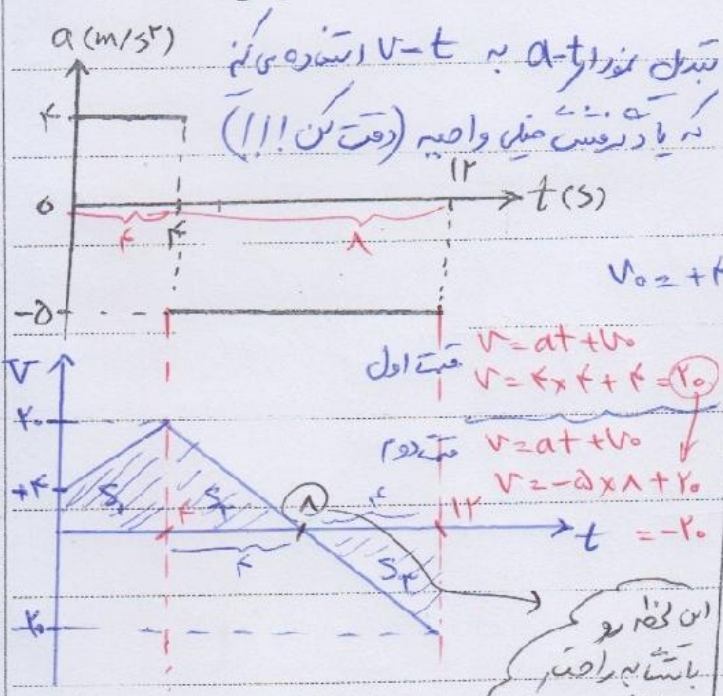 a (m/s²)
تبدیل نمودار a-t به v-t استفاده می‌کنه
که یاد گرفتنش خیلی واجبه (دقت کن!!!)
۴
۰
۴
۴
۸
۱۲
t (s)
-۵
V₀ = +۴
V
قسمت اول
V = at + V₀
V = ۴ × ۴ + ۴ = ۲۰
قسمت دوم
V = at + V₀
V = -۵ × ۸ + ۲۰
= -۲۰
۲۰
+۴
S₁
۴
S₂
۸
۴
۱۲
t
۴
S₃
-۲۰
این لحظه رو
با تشابه راحت